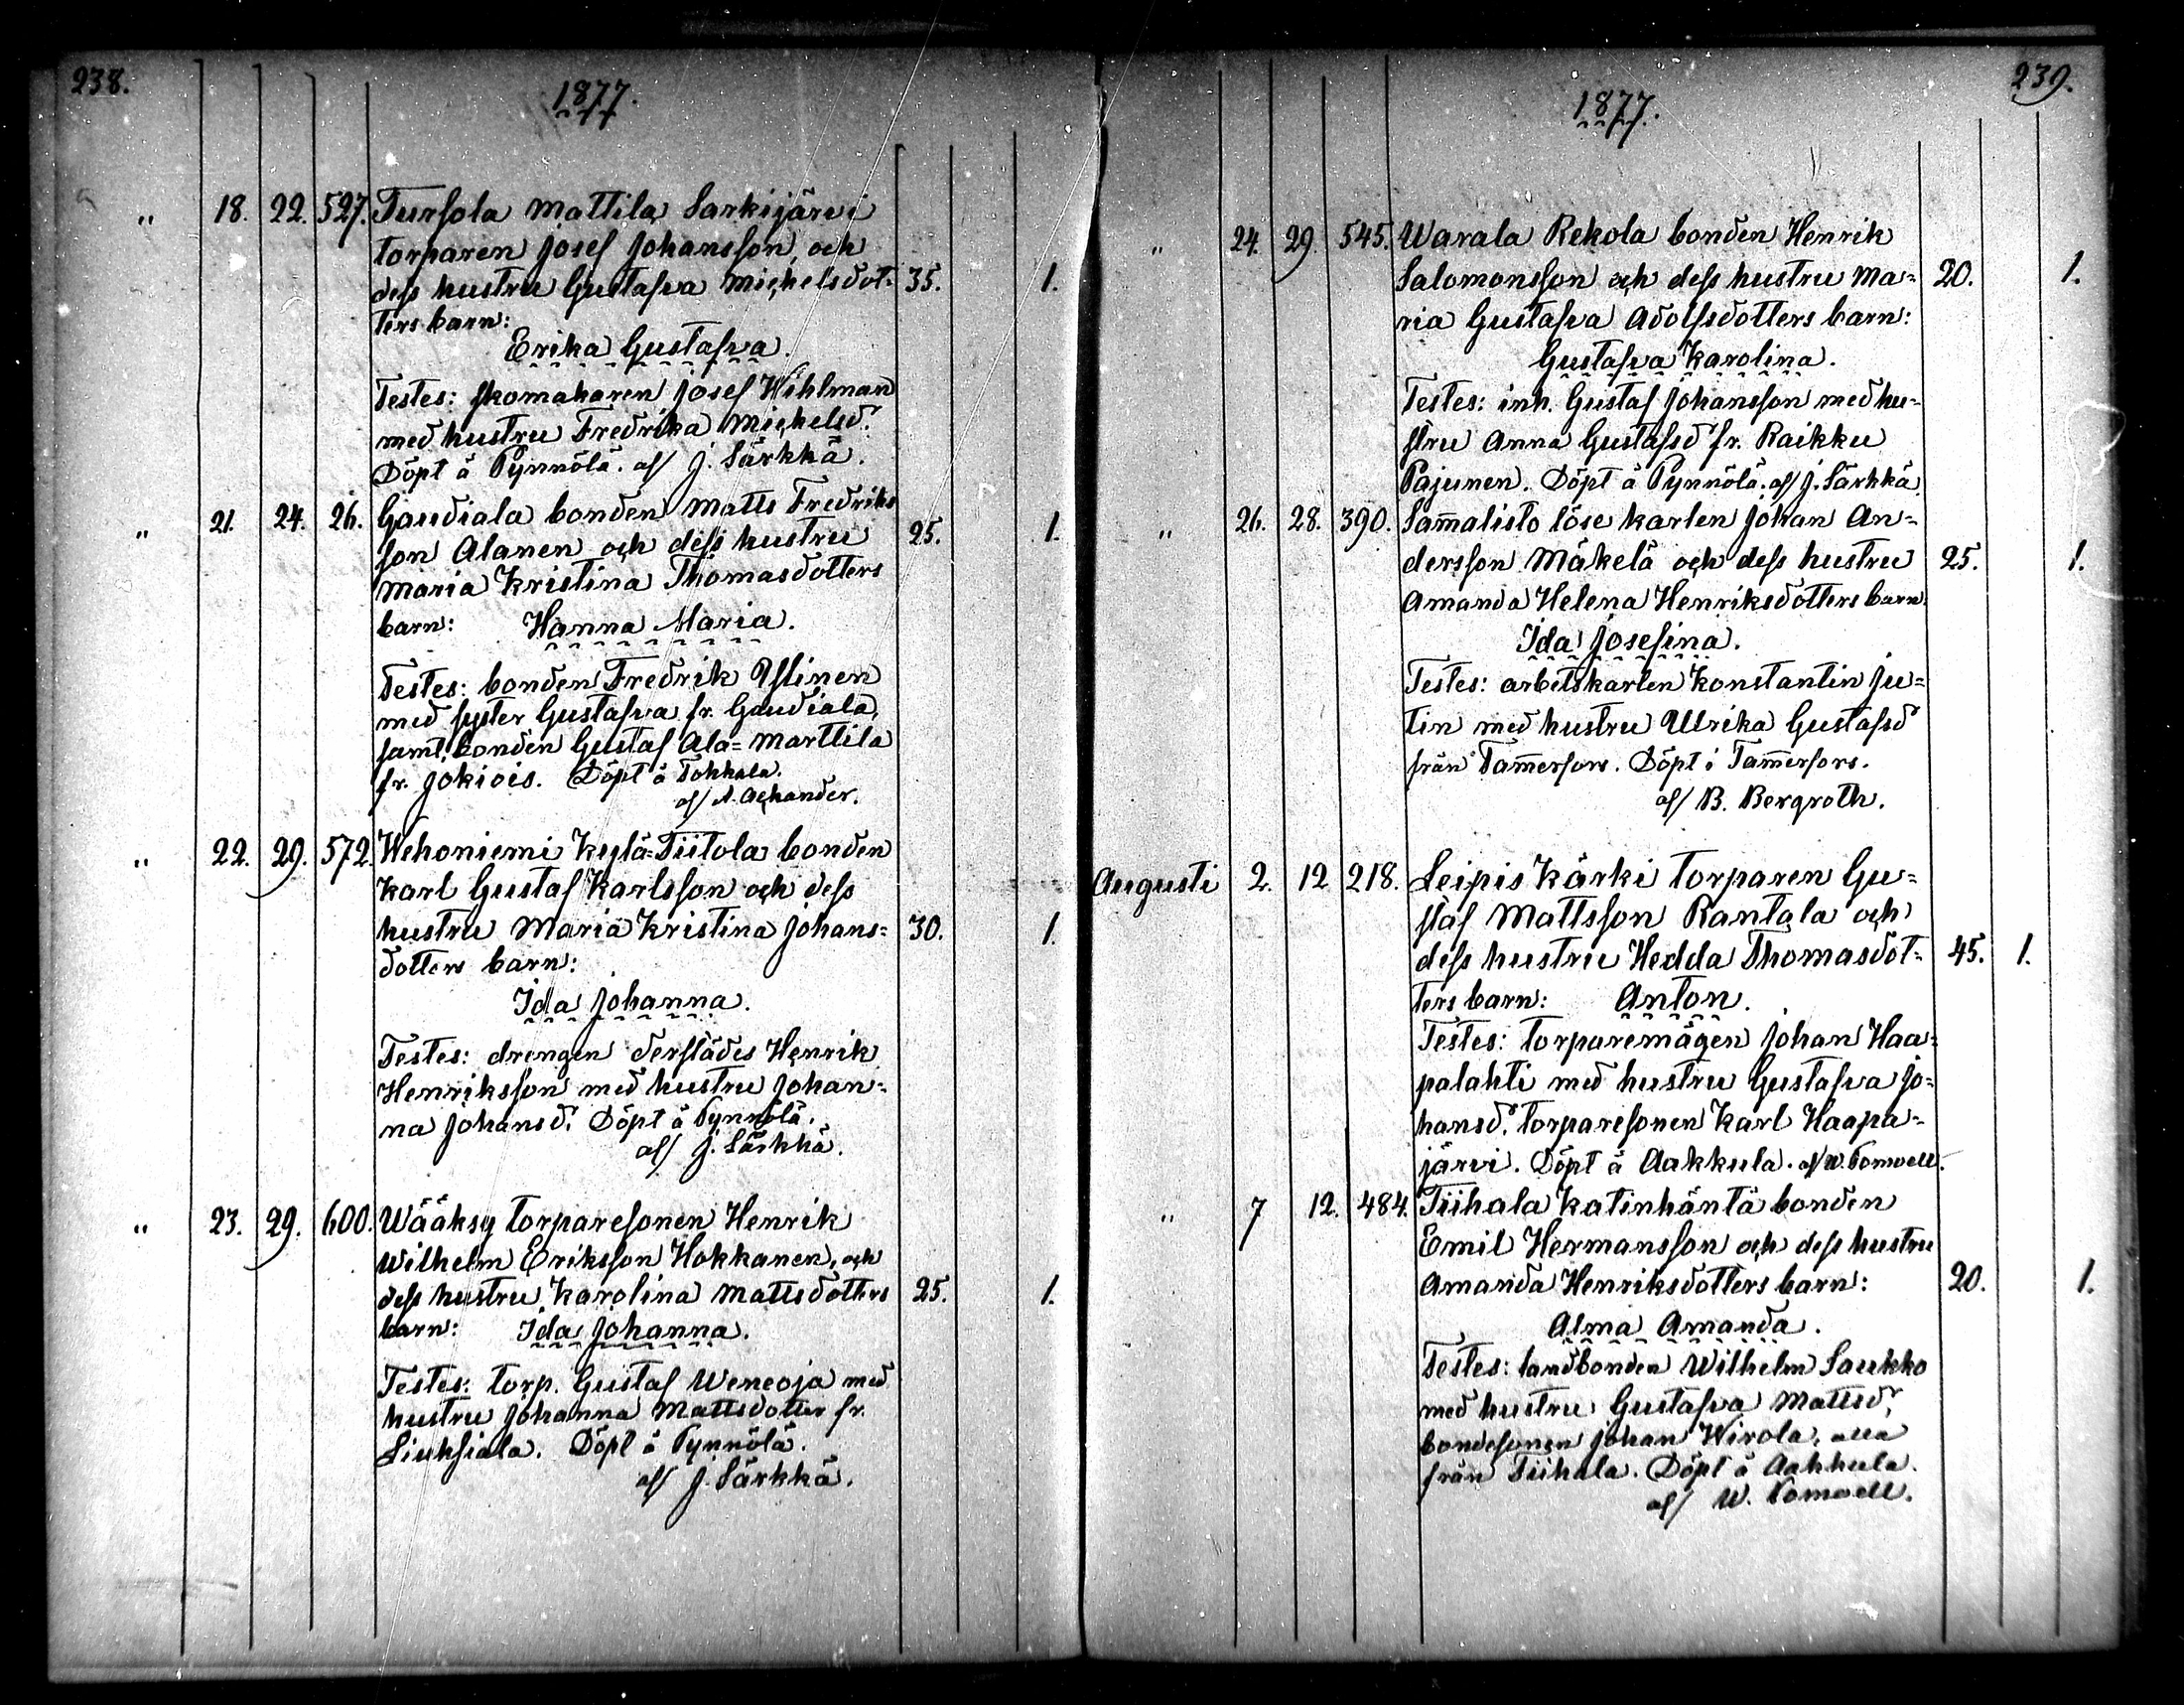 238.
1877.
" 18. 22. 527. Tursola Mattila Sarkijärvi
torparen Josef Johansson, och
dess hustru Gustafva Michelsdot- 35. 1.
ters barn:
Erika Gustafva.
Testes: skomakaren Josef Wihlman
med hustru Fredrika Michelsd.
Döpt å Pynnölä. af J. Särkkä.
" 21. 24. 26. Gaudiala bonden Matts Fredriks
son Alanen och dess hustru 25. 1.
Maria Kristina Thomasdotters
barn: Hanna Maria.
Testes: bonden Fredrik Yslinen
med syster Gustafva fr. Gaudiala,
samt bonden Gustaf Ala=Marttila
fr. Jokiois. Döpt å Tokkala.
af A. Ackander.
" 22. 29. 572. Wehoniemi Kylä=Tiitola bonden
Karl Gustaf Karlsson och dess
hustru Maria Kristina Johans= 30. 1.
dotters barn:
Ida Johanna.
Testes: drengen derstädes Henrik
Henriksson med hustru Johan=
na Johansd. Döpt å Pynnölä.
af J. Särkkä.
" 23. 29. 600. Wääksy torparesonen Henrik
Wilhelm Eriksson Hokkanen, och
dess hustru Karolina Mattsdotters 25. 1.
barn: Ida Johanna.
Testes: torp. Gustaf Weneoja med
hustru Johanna Mattsdotter fr.
Liuksiala. Döpt å Pynnölä.
af J. Särkkä.
239.
1877.
" 24. 29. 545. Warala Rekola bonden Henrik
Salomonsson och dess hustru Ma= 20. 1.
ria Gustafva Adolfsdotters barn:
Gustafva Karolina.
Testes: inh. Gustaf Johansson med hu=
stru Anna Gustafsd fr. Raikku
Pajunen. Döpt å Pynnölä. af J. Särkkä.
" 26. 28. 390. Sam̄alisto löse karlen Johan An=
dersson Mäkelä och dess hustru 25. 1.
Amanda Helena Henriksdotters barn.
Ida Josefina.
Testes: arbetskarlen Konstantin Ju=
tin med hustru Ulrika Gustafsd
från Tam̄erfors. Döpt i Tam̄erfors.
af B. Bergroth.
Augusti 2. 12 218. Leipis Kärki torparen Gu=
staf Mattsson Rantala och
dess hustru Hedda Thomasdot= 45. 1.
ters barn: Anton.
Testes: torparemågen Johan Haa=
palahti med hustru Gustafva Jo=
hansd. torparesonen Karl Haapa=
järvi. Döpt å Aakkula. af W. Pomoell.
" 7 12. 484. Tiihala Katinhäntä bonden
Emil Hermansson och dess hustru
Amanda Henriksdotters barn: 20. 1.
Alma Amanda.
Testes: landbonden Wilhelm Saukko
med hustru Gustafva Mattsd,
bondesonen Johan Wirola, alla
från Tiihala. Döpt å Aakkula.
af W. Pomoell.